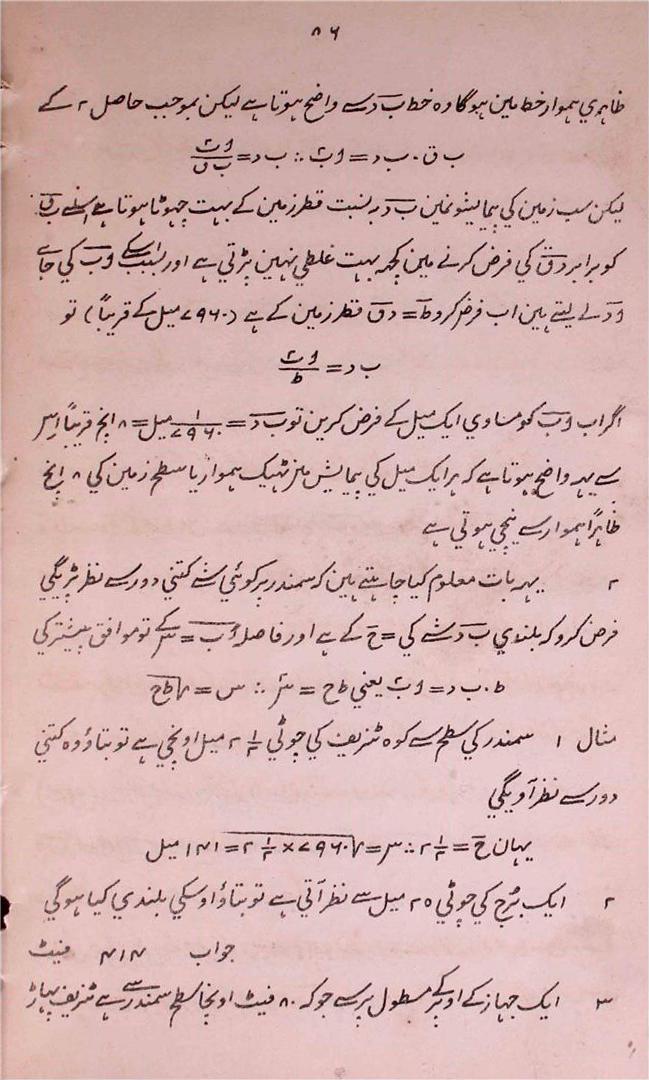 ۸۶
ظاہري ہموار خط مین ہوگا وہ خط ب د سے واضح ہوتا ہے لیکن بموجب حاصل ۲ کے
ب ق · ب د = ا ب۲ ∴ ب د = ا ب۲ / ب ق
لیکن سب زمین کي پیمایشو نمین ب د بہ نسبت قطر زمین کے بہت چہوٹا ہوتا ہے اسلئے ب ق
کو برابر د ق کي فرض کرنے مین کچہہ بہت غلطي نہین پڑتي ہے اور بسبب اسکے ا ب کي جاے
ا د لے لیتے ہین اب فرض کرو ط = د ق قطر زمین کے ہے (۷۹۶۰ میل کے قریباً) تو
ب د = ا ب۲ / ط
اگر اب ا ب کو مساوي ایک میل کے فرض کرین تو ب د = ۱/۷۹۶۰ میل = ۸ انچ قریباً اس
سے یہہ واضح ہوتا ہے کہ ہر ایک میل کي پیمایش مین ٹہیک ہموار یا سطح زمین کي ۸ انچ
ظاہراً ہموار سے نیچي ہوتي ہے
۲ یہہ بات معلوم کیا چاہتے ہین کہ سمندر پر کوئي شے کتني دور سے نظر پڑیگي
فرض کرو کہ بلندي ب د شے کي = ح کے ہے اور فاصلہ ا ب = س کے تو موافق پیشتر کي
ط · ب د = ا ب۲ یعني ط ح = س۲ ∴ س = √ط ح
مثال ۱ سمندر کي سطح سے کوہ ٹنریف کي چوٹي ۲ ۱/۲ میل اونچي ہے تو بتاؤ وہ کتني
دور سے نظر آویگي
یہان ح = ۲ ۱/۲ ∴ س = √۷۹۶۰ × ۲ ۱/۲ = ۱۴۱ میل
۲ ایک برج کي چوٹي ۲۵ میل سے نظر آتي ہے تو بتاؤ اوسکي بلندي کیا ہوگي
جواب ۴۱۴ فیٹ
۳ ایک جہاز کے اوپر کے مسطول پر سے جو کہ ۸۰ فیٹ اونچا سطح سمندر سے ہے ٹنریف پہاڑ